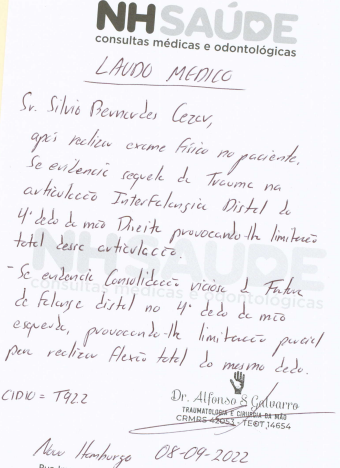 NHSAÚDE
consultas médicas e odontológicas
LAUDO MEDICO
Sr. Silvio Bernardes Cezar,
após realizar exame físico no paciente.
Se evidencia sequela de Trauma na
articulação Interfalangia Distal do
4º dedo da mão Direita provocando-lhe limitação
total desse articulação.
NHSAÚDE
consultas médicas e odontológicas
- Se evidencia Consolidação viciosa de Fratura
de Falange distal no 4º dedo da mão
esquerda, provocando-lhe limitação parcial
para realizar Flexão total do mesmo dedo.
CID10 = T92.2
Dr. Alfonso S Galvarro
TRAUMATOLOGIA E CIRURGIA DA MÃO
CRMRS 42053 - TEOT 14654
Novo Hamburgo 08-09-2022